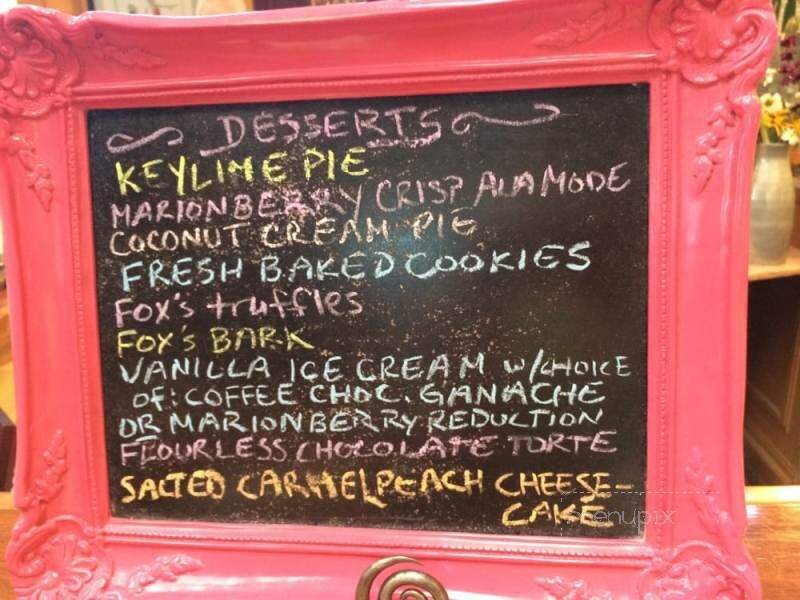 DESSERTS
KEYLIME PIE
MARIONBERRY CRISP ALAMODE
COCONUT CREAM PIE
FRESH BAKED COOKIES
FOX'S truffles
FOX'S BARK
VANILLA ICE CREAM w/CHOICE
OF: COFFEE CHOC. GANACHE
OR MARIONBERRY REDUCTION
FLOURLESS CHOCOLATE TORTE
SALTED CARMEL PEACH CHEESE-
CAKE
menupix